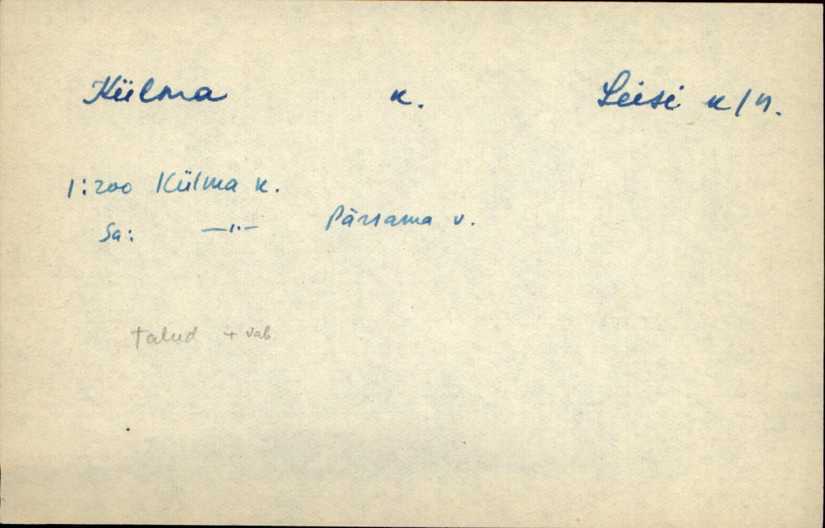 Külma k. Leisi k/n.
1:200 Külma k.
Sa: —"— Pärsama v.
talud + vab